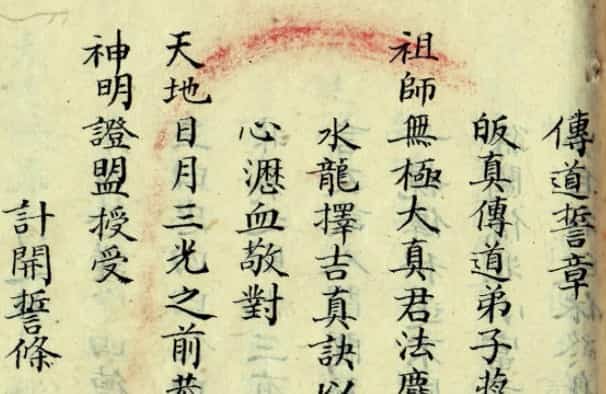 傳道誓章
皈真傳道弟子蔣
祖師無極大真君法
水龍擇吉真訣以
心瀝血敬對
天地日月三光之前恭
神明證盟授受
計開誓條